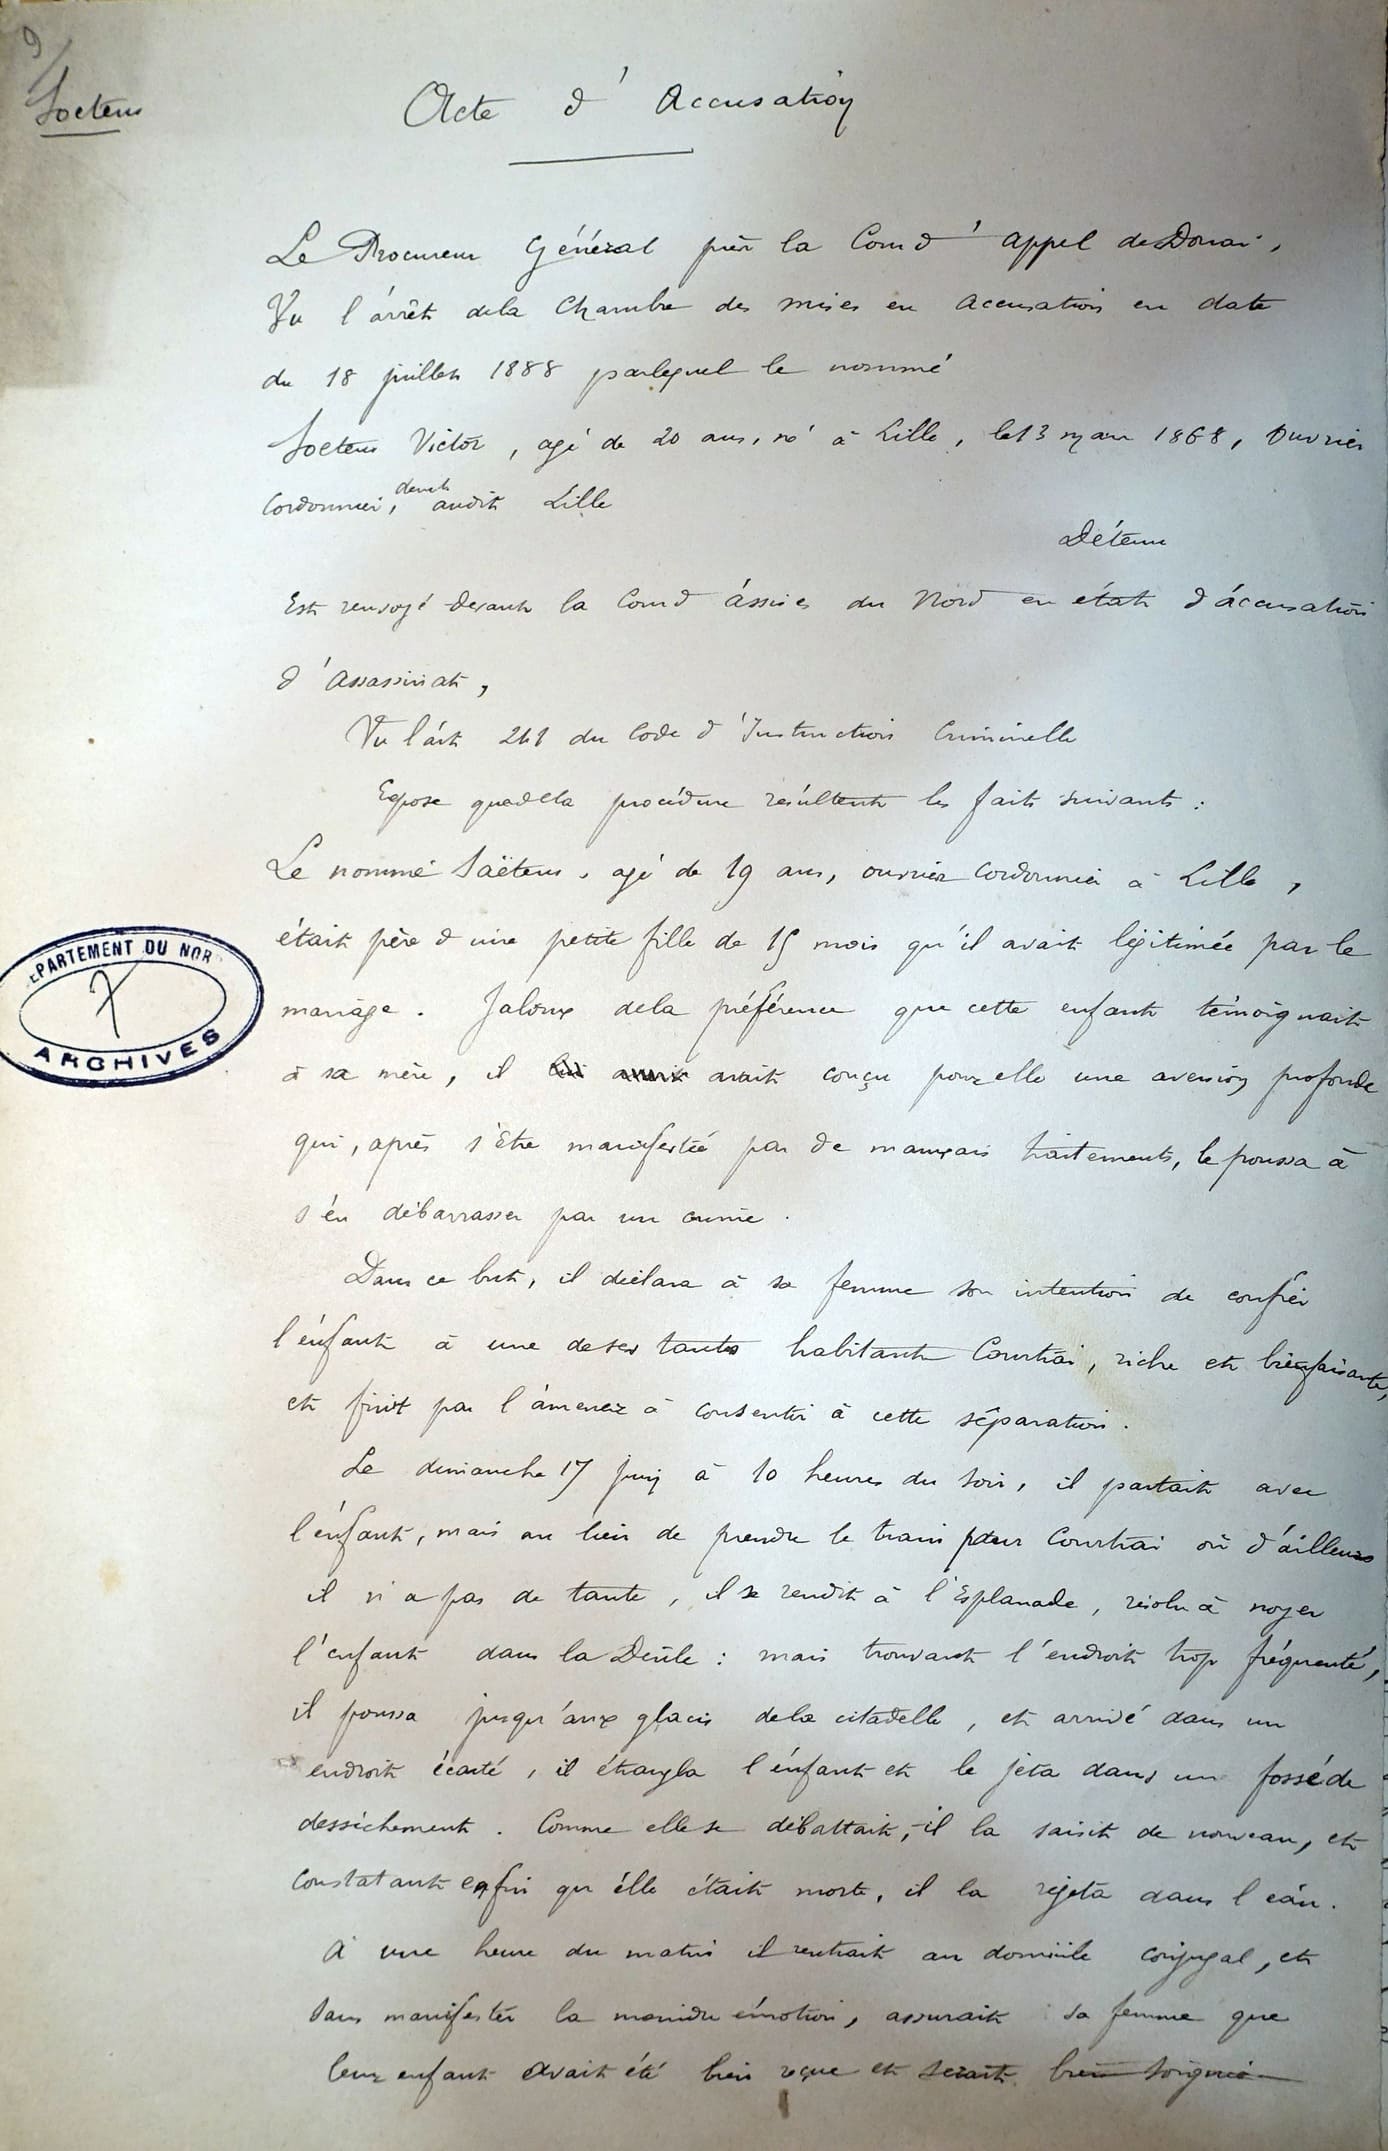 9/
Soetens
Acte d'Accusation
Le Procureur Général près la Cour d'appel de Douai,
Vu l'arrêt de la Chambre des mises en accusation en date
du 18 juillet 1888 par lequel le nommé
Soetens Victor, agé de 20 ans, né à Lille, le 13 mars 1868, ouvrier
Cordonnier, demt audit Lille
Détenu
Est renvoyé devant la Cour d'assises du Nord en état d'accusation
d'assassinat,
Vu l'art 241 du Code d'Instruction Criminelle
Expose que de la procédure résultent les faits suivants :
Le nommé Saëtens, agé de 19 ans, ouvrier cordonnier à Lille,
était père d'une petite fille de 15 mois qu'il avait légitimée par le
mariage. Jaloux de la préférence que cette enfant témoignait
à sa mère, il avait conçu pour elle une aversion profonde
qui, après s'être manifestée par de mauvais traitements, le poussa à
s'en débarrasser par un crime.
Dans ce but, il déclara à sa femme son intention de confier
l'enfant à une de ses tantes habitant Courtrai, riche et bienfaisante,
et finit par l'amener à consentir à cette séparation.
Le dimanche 17 juin à 10 heures du soir, il partait avec
l'enfant, mais au lieu de prendre le train pour Courtrai où d'ailleurs
il n'a pas de tante, il se rendit à l'Esplanade, résolu à noyer
l'enfant dans la Deûle : mais trouvant l'endroit trop fréquenté,
il poussa jusqu'aux glacis de la citadelle, et arrivé dans un
endroit écarté, il étrangla l'enfant et le jeta dans un fossé de
dessèchement. Comme elle se débattait, il la saisit de nouveau, et
constatant enfin qu'elle était morte, il la rejeta dans l'eau.
A une heure du matin il rentrait au domicile conjugal, et
sans manifester la moindre émotion, assurait sa femme que
leur enfant avait été bien reçue et serait bien soignée
DEPARTEMENT DU NORD
ARCHIVES